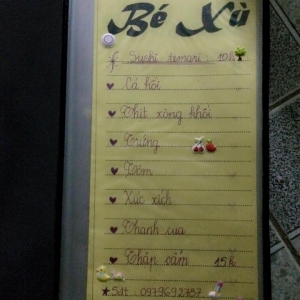 Bé Xù
Sushi temari : 10k
Cá hồi
Thịt xông khói
Trứng
Tôm
Xúc xích
Thanh cua
Thập cẩm 15k
Sđt : 0979692757